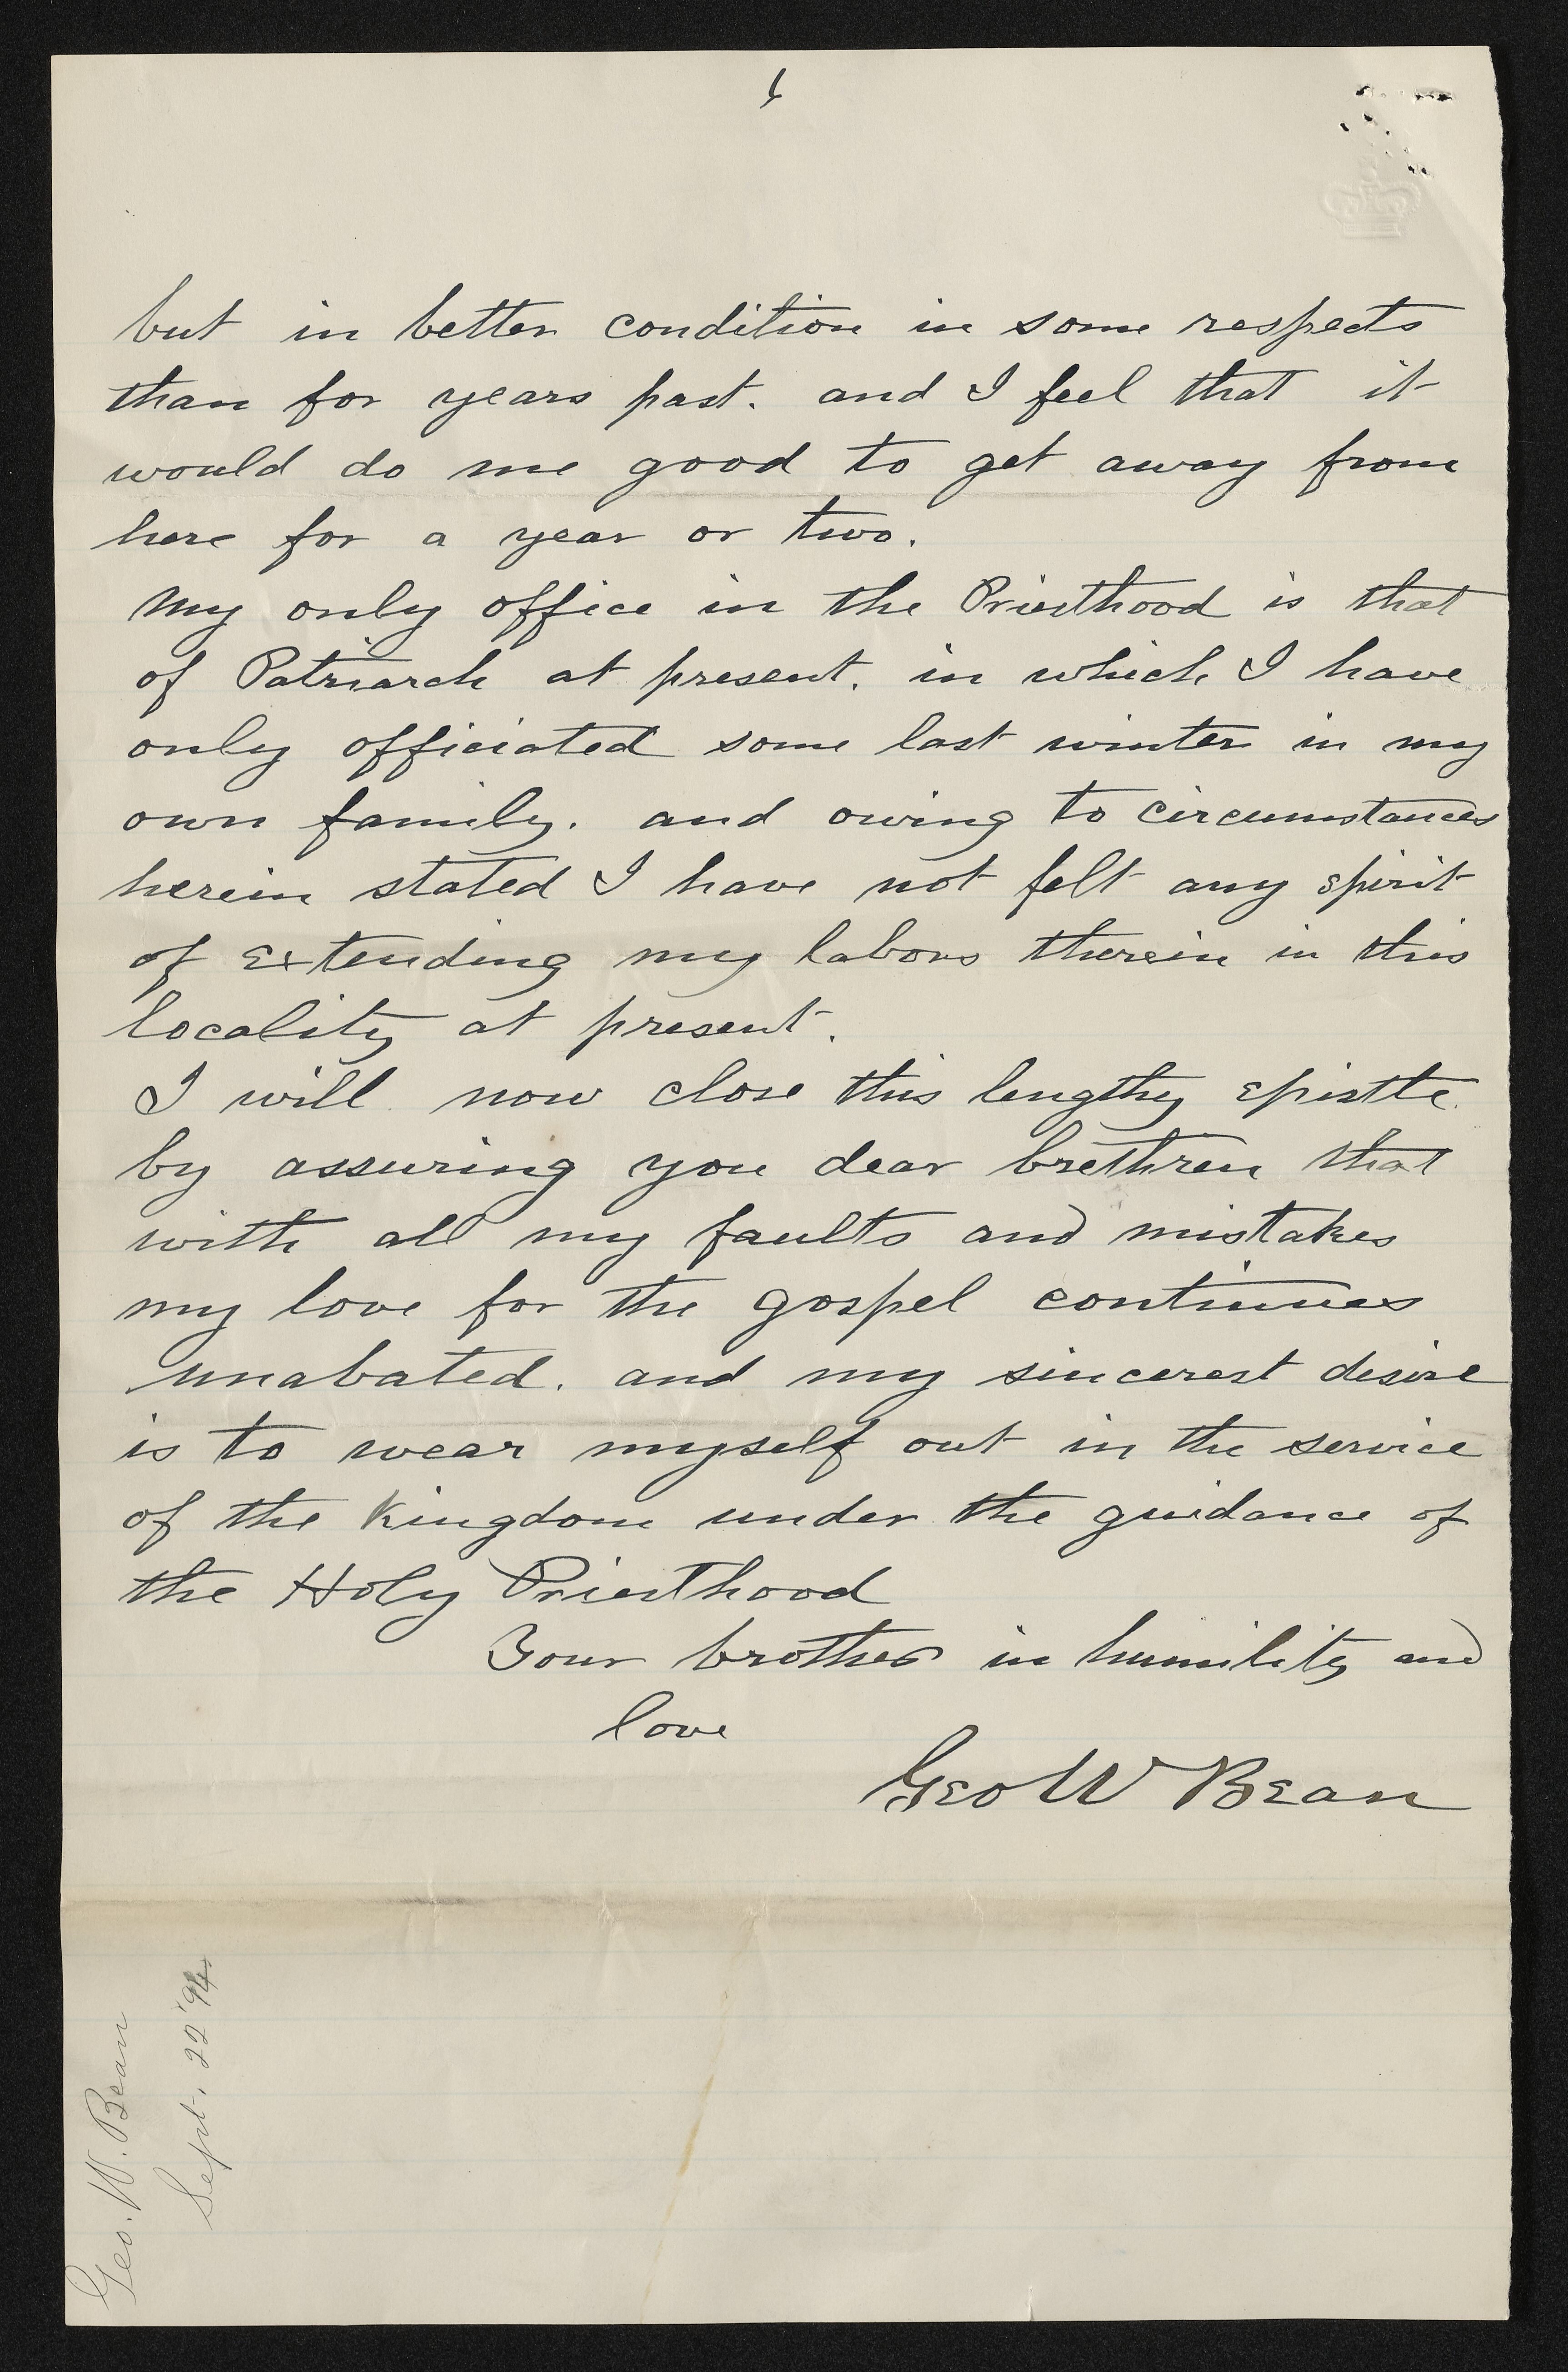 but in better condition in some respects
than for years past. and I feel that it
would do me good to get away from
here for a year or two.
My only office in the Priesthood is that
of Patriarch at present. in which I have
only officiated some last winter in my
own family. and owing to circumstances
herein stated I have not felt any spirit
of extending my labors therein in this
locality at present.
I will now close this lengthy epistle
by assuring you dear brethren that
with all my faults and mistakes
my love for the gospel continues
unabated. and my sincerest desire
is to wear myself out in the service
of the Kingdom under the guidance of
the Holy Priesthood
Your brother in humility and
love
Geo W Bean
Geo. W. Bean
Sept. 22 '94